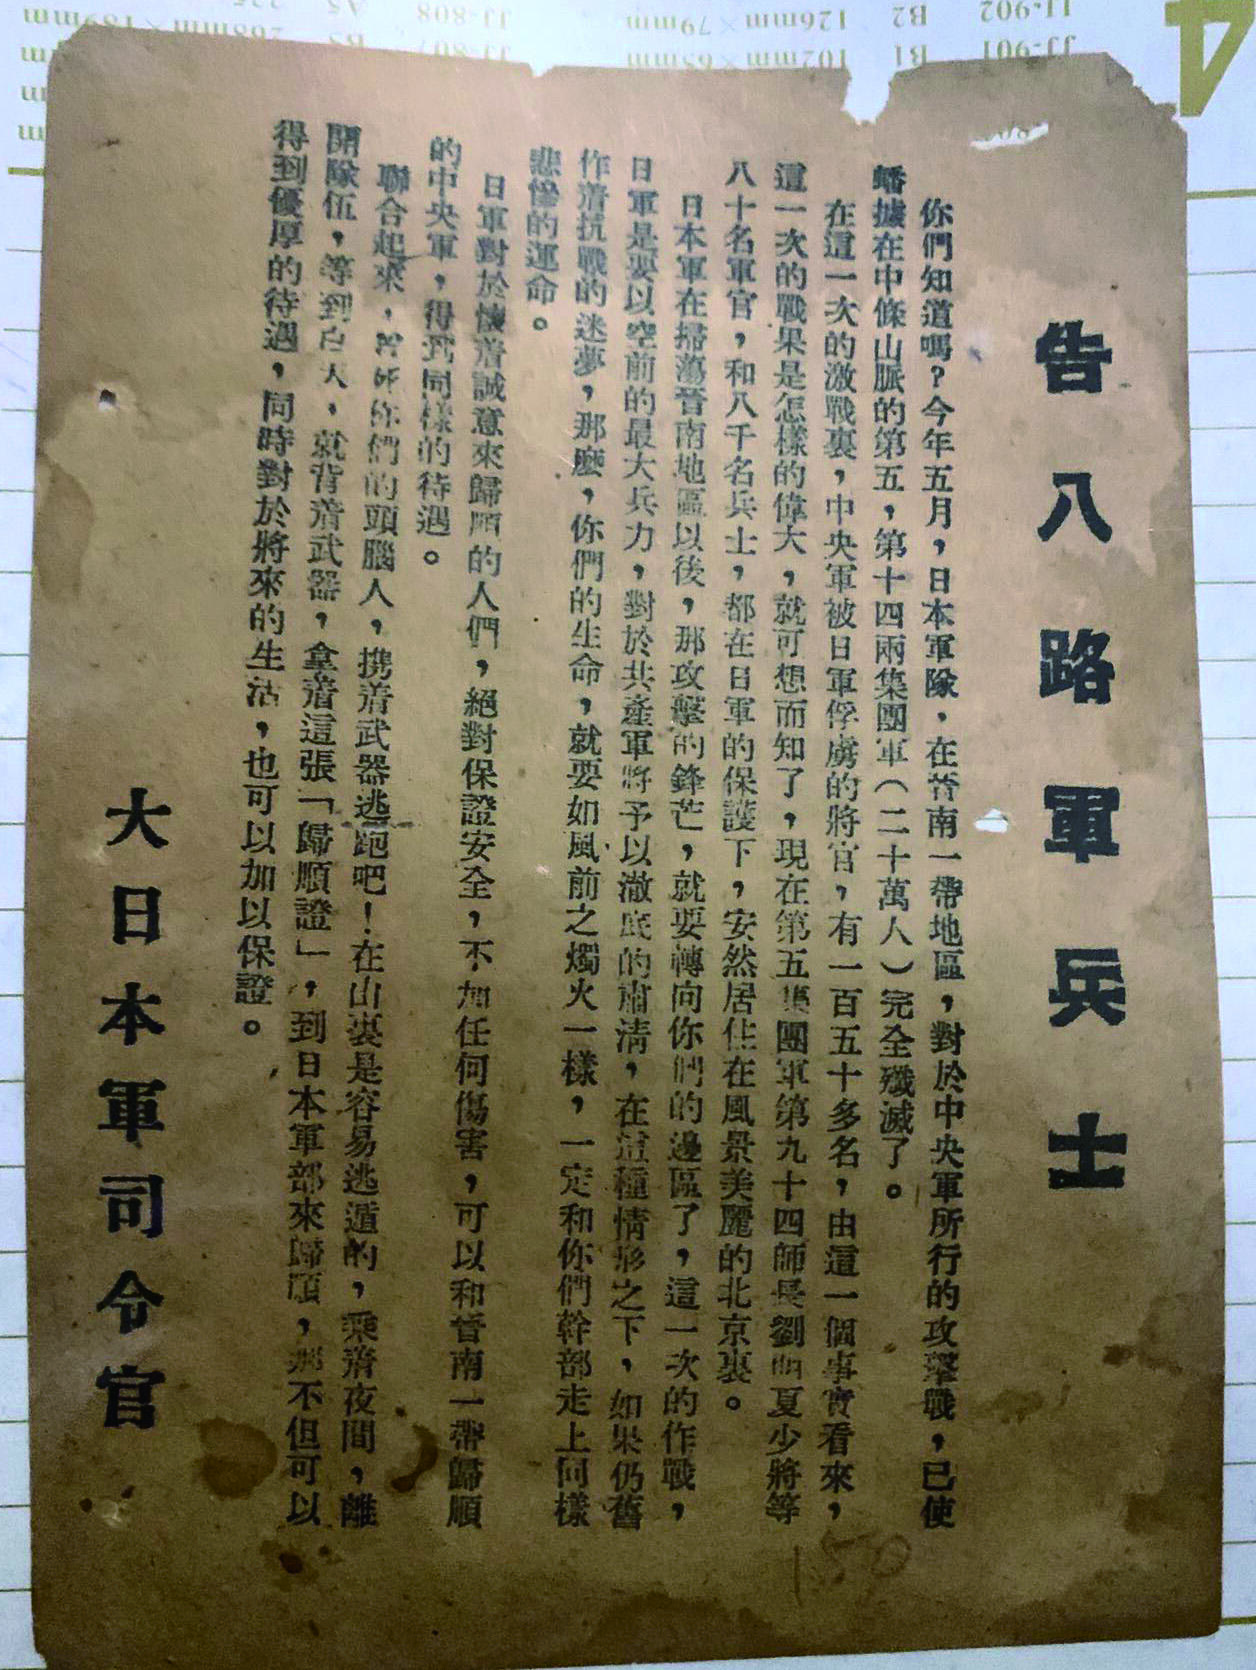 告八路軍兵士
你們知道嗎？今年五月，日本軍隊，在晉南一帶地區，對於中央軍所行的攻擊戰，已使
蟠據在中條山脈的第五，第十四兩集團軍（二十萬人）完全殲滅了。
在這一次的激戰裏，中央軍被日軍俘虜的將官，有一百五十多名，由這一個事實看來，
這一次的戰果是怎樣的偉大，就可想而知了，現在第五集團軍第九十四師長劉明夏少將等
八十名軍官，和八千名兵士，都在日軍的保護下，安然居住在風景美麗的北京裏。
日本軍在掃蕩晉南地區以後，那攻擊的鋒芒，就要轉向你們的邊區了，這一次的作戰，
日軍是要以空前的最大兵力，對於共產軍將予以澈底的肅清，在這種情形之下，如果仍舊
作着抗戰的迷夢，那麽，你們的生命，就要如風前之燭火一樣，一定和你們幹部走上同樣
悲慘的運命。
日軍對於懷着誠意來歸順的人們，絕對保證安全，不加任何傷害，可以和晉南一帶歸順
的中央軍，得到同樣的待遇。
聯合起來，死你們的頭腦人，携着武器逃跑吧！在山裏是容易逃遁的，乘着夜間，離
開隊伍，等到白天，就背着武器，拿着這張「歸順證」，到日本軍部來歸順，那不但可以
得到優厚的待遇，同時對於將來的生活，也可以加以保證。
大日本軍司令官
150
JJ-902 B2 126mm×79mm
JJ-901 B1 102mm×63mm
JJ-808 A5
4